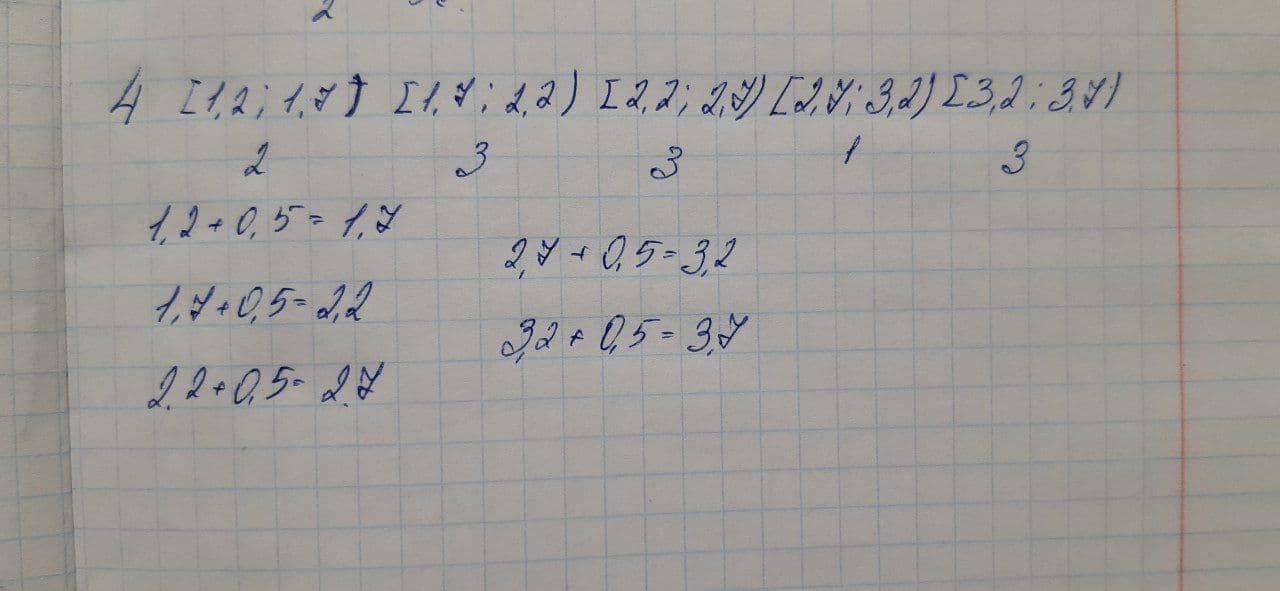 4 [1,2; 1,7) [1,7; 2,2) [2,2; 2,7) [2,7; 3,2) [3,2; 3,7)
2 3 3 1 3
1,2 + 0,5 = 1,7
1,7 + 0,5 = 2,2
2,2 + 0,5 = 2,7
2,7 + 0,5 = 3,2
3,2 + 0,5 = 3,7